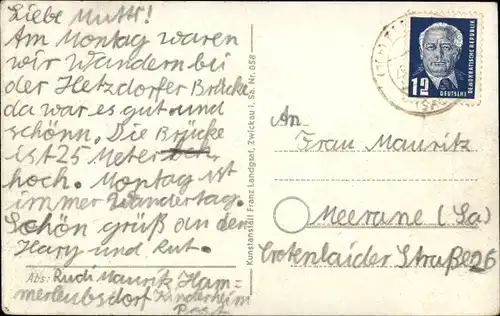 Liebe Mutti!
Am Montag waren
wir Wandern bei
der Hetzdorfer Brücke
da war es gut und
schönn. Die Brücke
ist 25 Meter
hoch. Montag ist
immer Wandertag.
Schön grüß an den
Hary und Rut.
Abs: Rudi Mauritz Ham=
merleubsdorf Kinderheim
Post
Kunstanstalt Franz Landgraf, Zwickau i. Sa. Nr. 058
12
DEUTSCHE
DEMOKRATISCHE REPUBLIK
An
Frau Mauritz
Meerane (Sa)
Crotenlaider Straße 26